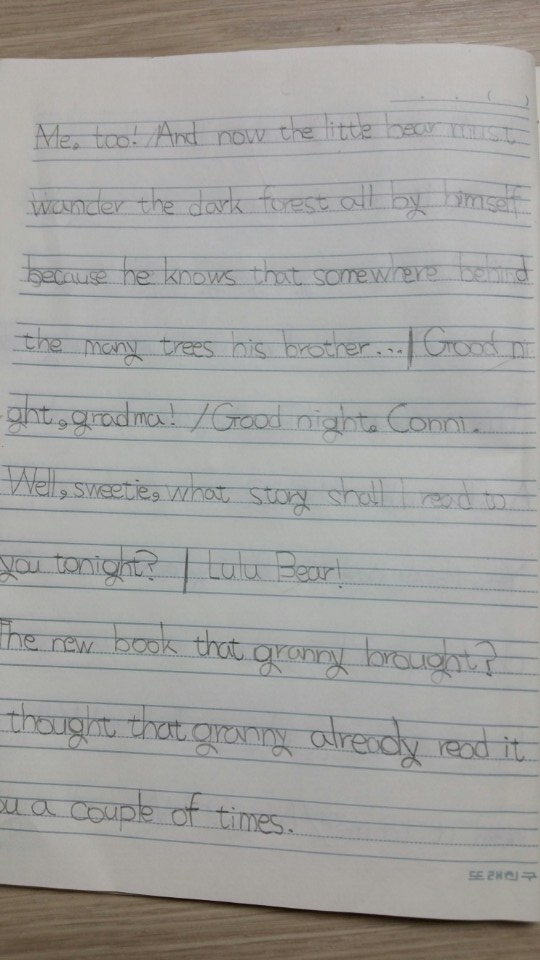 Me, too! / And now the little bear must
wander the dark forest all by himself
because he knows that somewhere behind
the many trees his brother...| Good ni
ght, gradma! / Good night, Conni.
Well, sweetie, what story shall I read to
you tonight? | Lulu Bear!
The new book that granny brought?
thought that granny already read it
ou a couple of times.